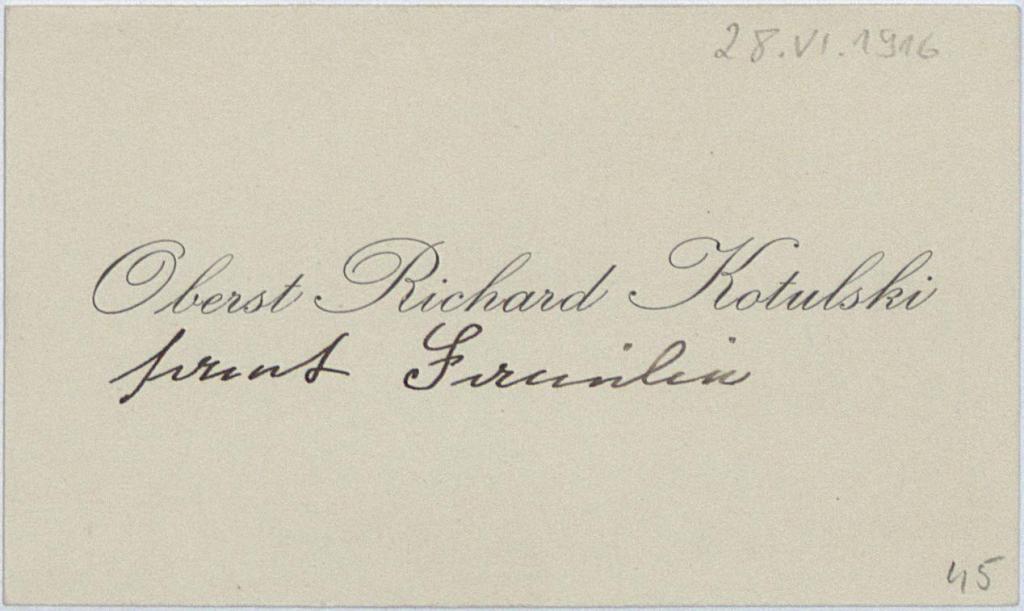 28.VI.1916
Oberst Richard Kotulski
samt Familie
45